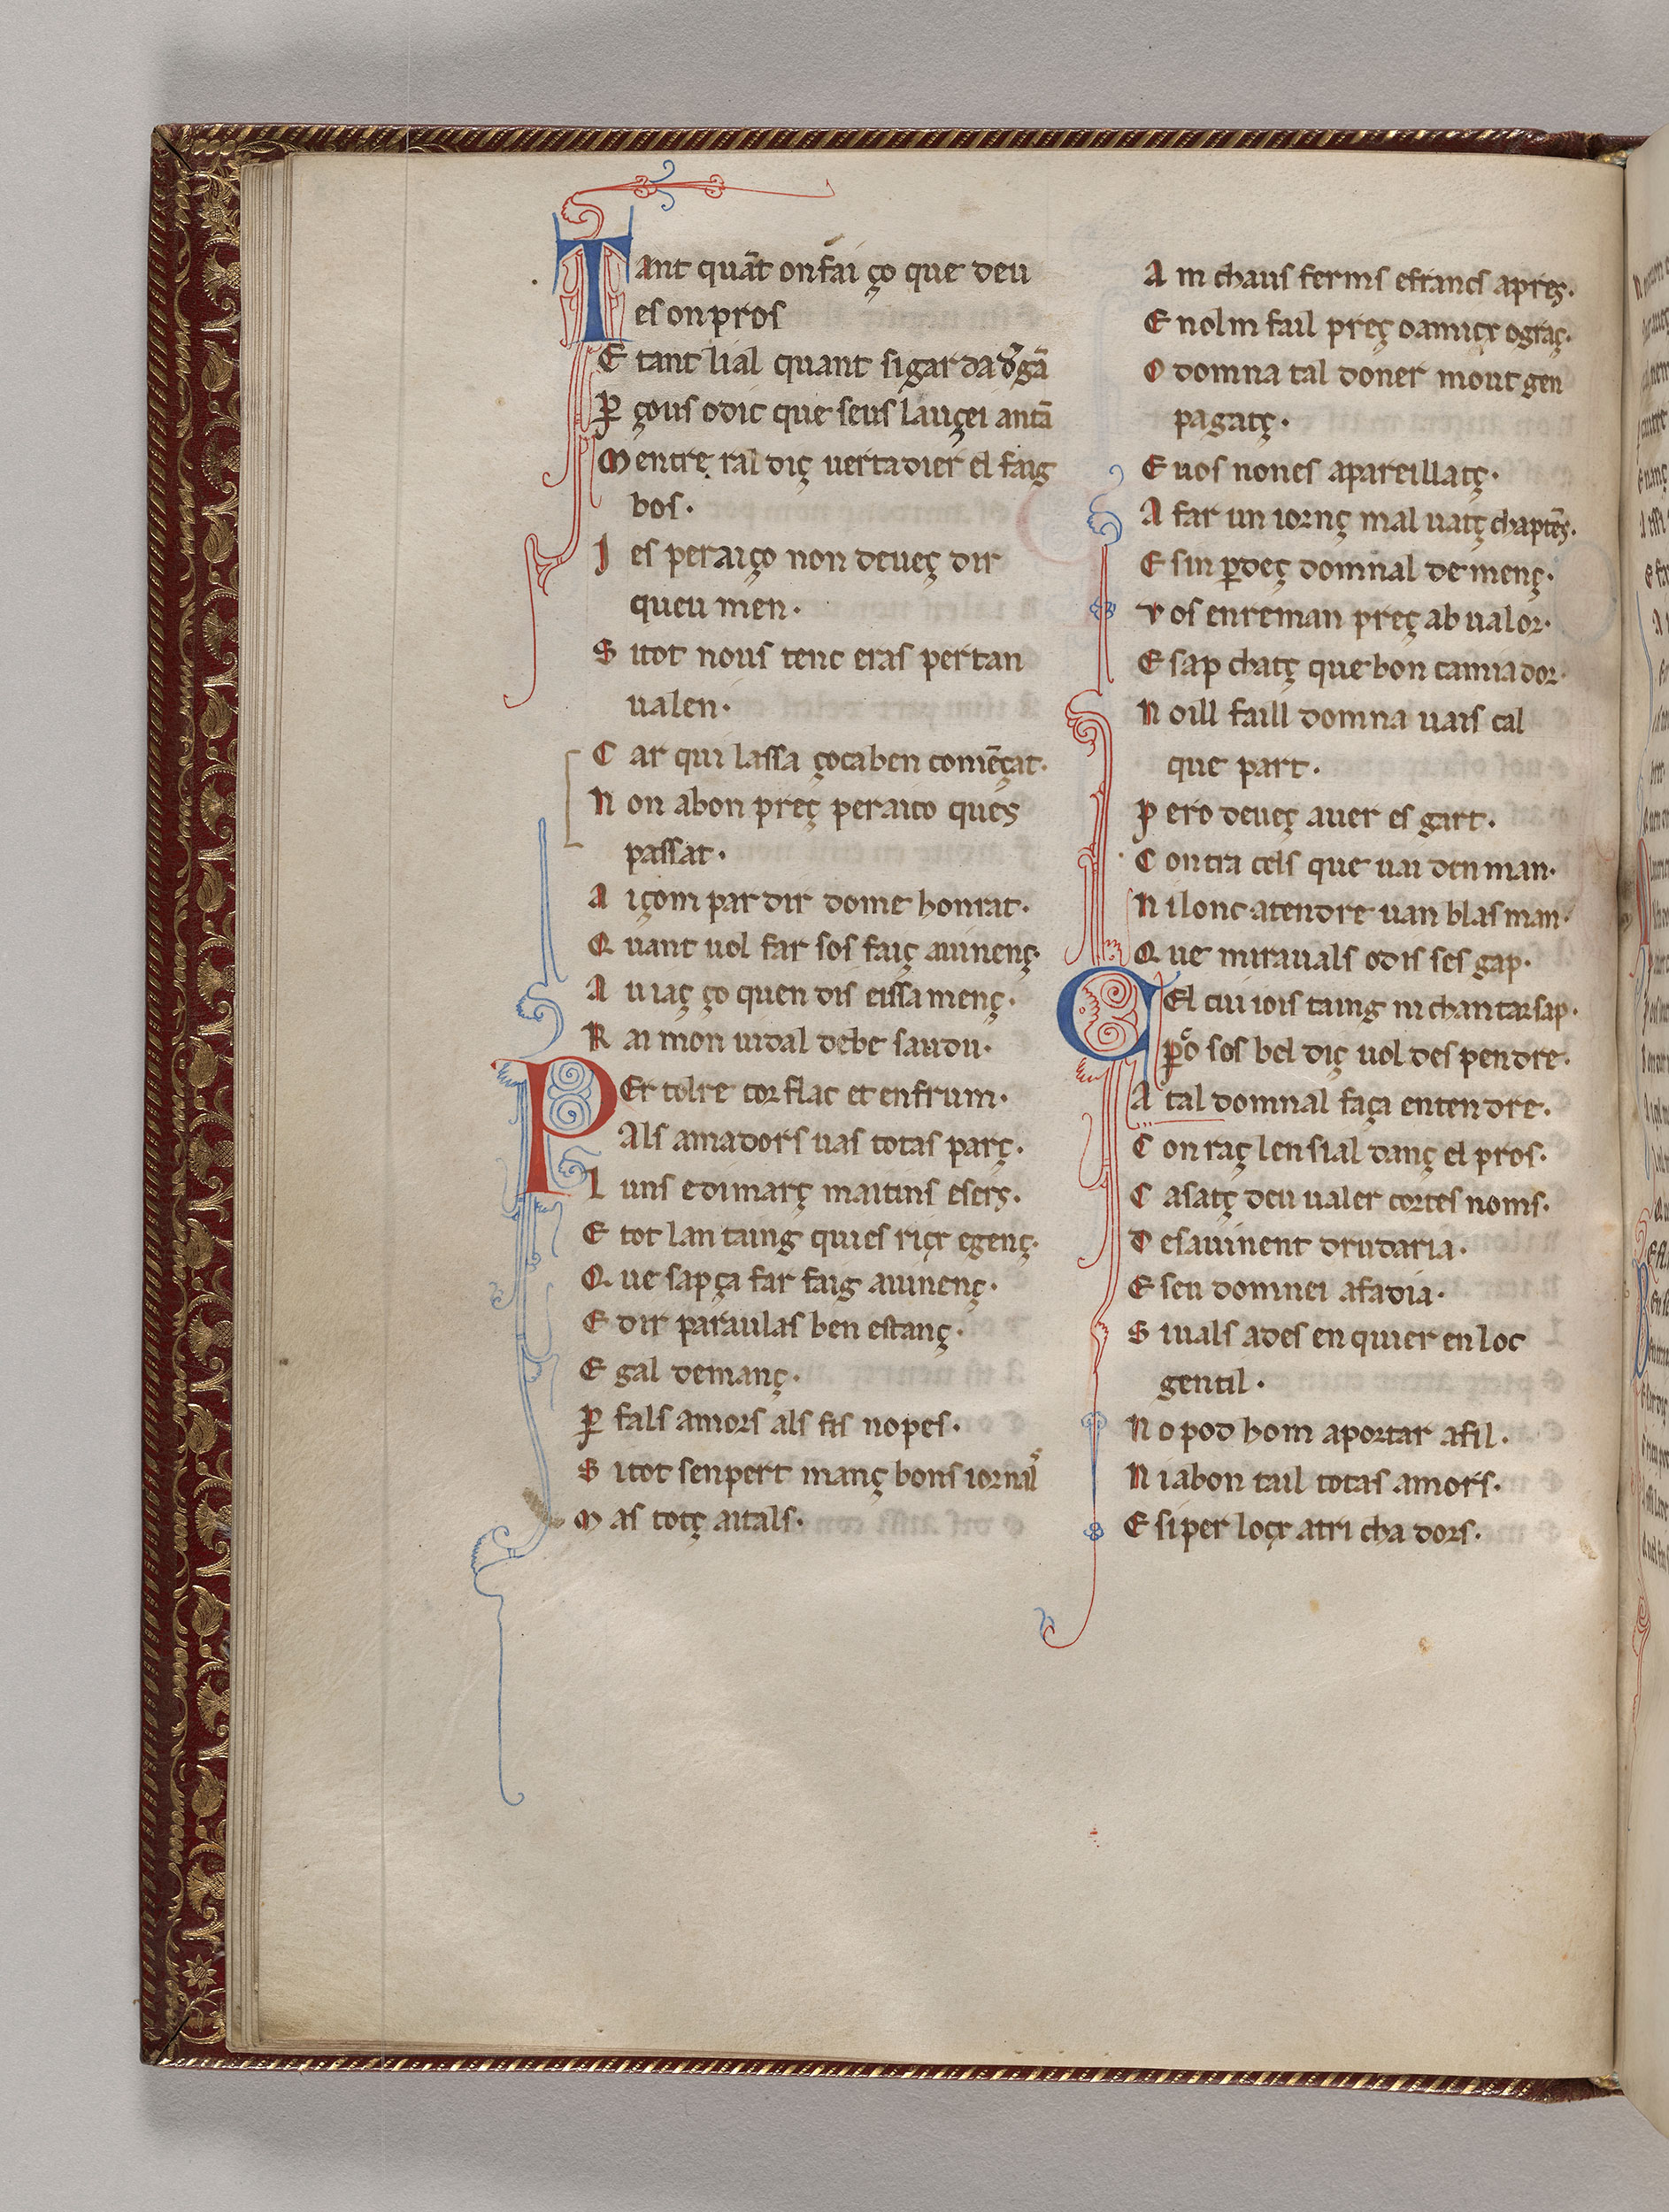 Tant quãt on fai ço que deu
es on pros
E tant lial quant si gar da d̉gã
ꝑ çous o dic que seus lauçei antã
Mentre ral diç uertadier el faig
bos·
J es per aiço non deueç dir
queu men·
S itot nous tenc eras per tan
ualen·
C ar qui lassa ço ca ben comẽçat·
N on a bon preç per aico ques
passat·
A içom par dir dome honrat·
Q uant uol far sos faiç auinenç·
A uiaç ço quen dis eissamenç·
R ai mon uidal debe saudu·
PEr tolre cor flac et enfrum·
Als amadors uas totas parç·
L uns e dimarç maitins e sers·
E tot lan taing quies riçx e genç·
Q ue sapça far faig auinenç·
E dir paraulas ben estanç·
E gal demanç·
ꝑ fals amors als fis nopes·
S itot sen pert manç bons iornal᷒
M as totç aitals·
A m chaus ferms e francs apres·
E nolm fail preç o amicx o graç·
O domna tal doner mout gen
pagatç·
E uos nones apareillatç·
A far un iornç mal uatç chaptẽs·
E sin ꝑdeç domnal de menç·
V os enreman preç ab ualor·
E sap chatç que bon camiador·
N oill faill domna uais cal
que part·
P ero deueç auer es gart·
C ontra cels que uai denman·
N i lonc atendre uan blasman·
Q ue mirauals o dis ses gap·
CEl cui iois taing ni chantar sap·
ꝑo̊ sos bel diç uol des pendre·
A tal domnal faça entendre·
C on raç len sial danç el pros·
C asatç deu ualer cortes noms·
D esauinent drudaria·
E seu domnei a fadia·
S iuals ades en quier en loc
gentil·
N o pod hom aportar afil·
N i abon tail totas amors·
E si per loçx atri cha dors·